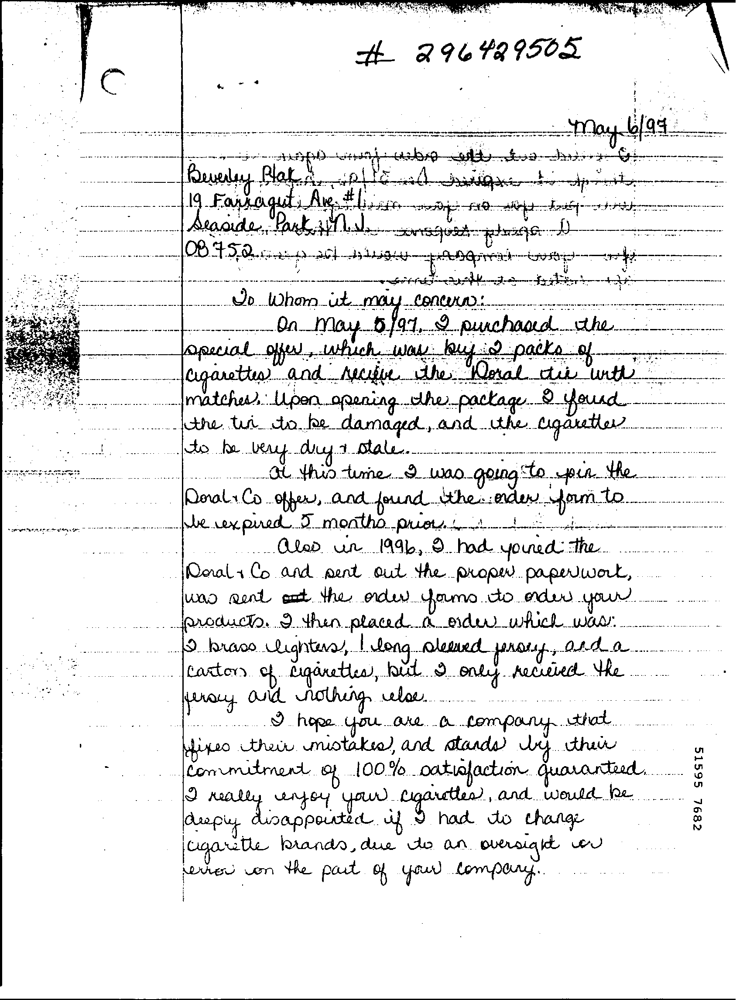 # 296429505
May 6/97
Beverley Plak
19 Farragut Ave #1
Seaside Park N.J.
08752
To Whom it may concern:
On May 5/97, I purchased the
special offer, which was buy 2 packs of
cigarettes and recieve the Doral tin with
matches. Upon opening the package I found
the tin to be damaged, and the cigarettes
to be very dry & stale.
At this time I was going to join the
Doral & Co offer, and found the order form to
be expired 5 months prior.
Also in 1996, I had joined the
Doral & Co and sent out the proper paperwork,
was sent the order forms to order your
products. I then placed a order which was:
2 brass lighters, 1 long sleeved jersey, and a
carton of cigarettes, but I only recieved the
jersey and nothing else.
I hope you are a company that
fixes their mistakes, and stands by their
commitment of 100% satisfaction guaranteed.
I really enjoy your cigarettes, and would be
deeply disappointed if I had to change
cigarette brands, due to an oversight or
error on the part of your company.
51595 7682